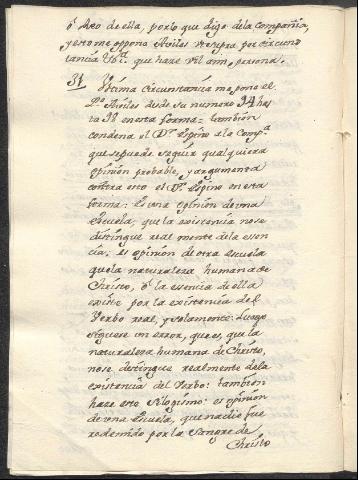 ô Reo de ella, por lo que dijo de la Compañia,
y esto me opone Aviles ubi supra, por circuns
tancia Ubi.ª que haze vil a mi persona.
31 Ultima circunstancia me pone el
P.e Aviles desde su numero 94 has
ta 98 en esta forma: tambien
condena el D.r Espino a la Comp.ª
que se puede seguir qualquiera
opinion probable, y argumenta
contra esto el D.r Espino en esta
forma: Es una opinion de una
Escuela, que la existencia no se
distingue realmente de la essen
cia: es opinion de otra escuela
que la naturaleza humana de
Christo, ô la esencia de ella
existe por la existencia del
Verbo real, y solamente: Luego
siguese un error, que es, que la
naturaleza humana de Christo,
no se distingue realmente de la
existencia del Verbo: tambien
haze este silogismo: es opinion
de una Escuela, que nadie fue
redemido por la Sangre de
Christo